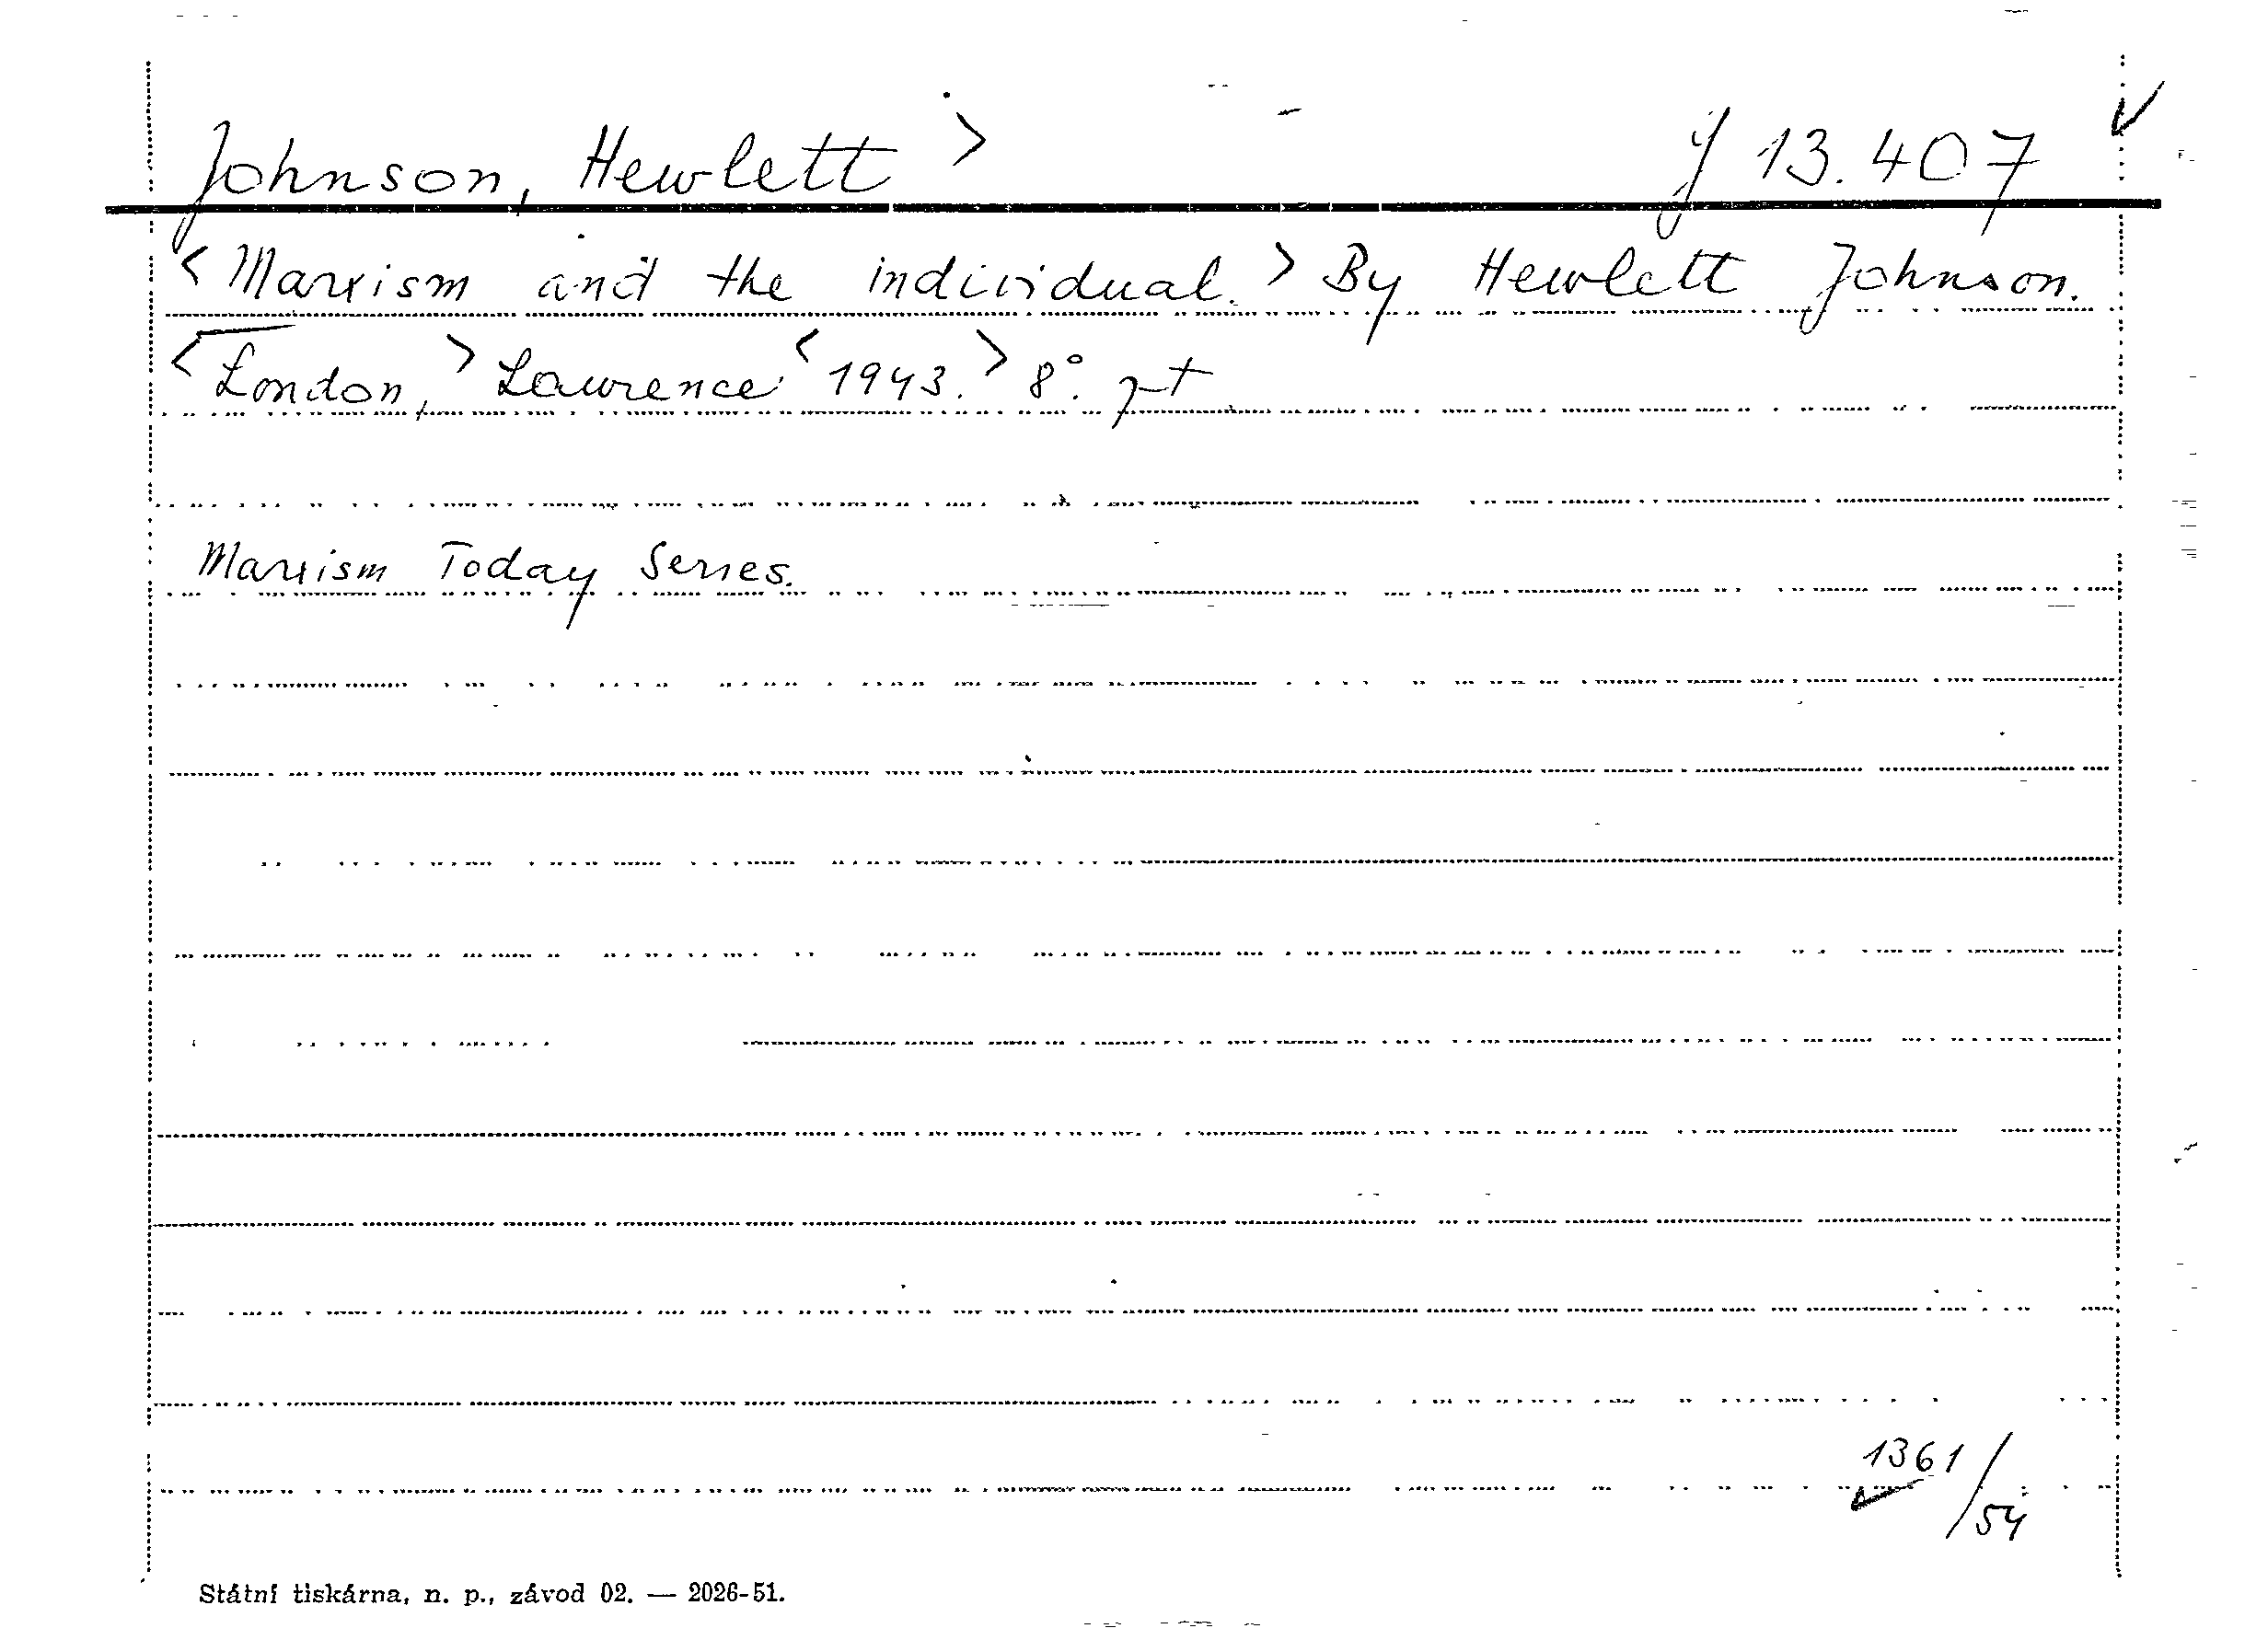 Johnson, Hewlett > J 13.407
< Marxism and the individual. > By Hewlett Johnson.
< London, > Lawrence < 1943. > 8°.
Marxism Today Series.
1361/54
Státní tiskárna, n. p., závod 02. — 2026-51.